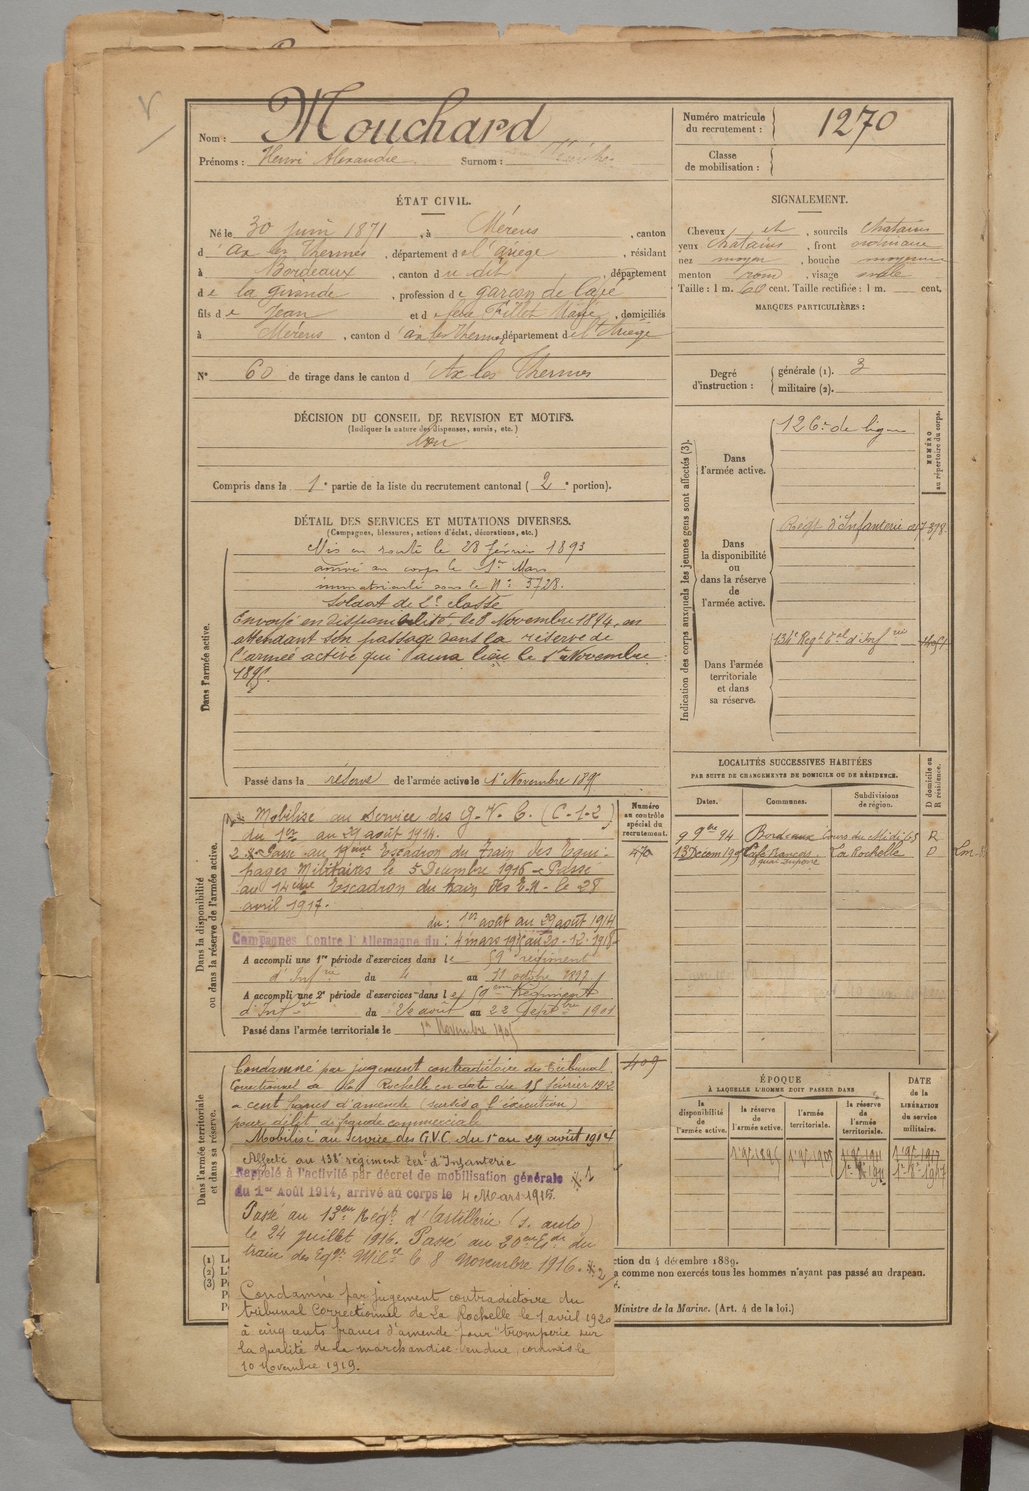 Nom : Mouchard
Prénoms : Henri Alexandre Surnom :
Numéro matricule du recrutement : 1270
Classe de mobilisation :
ÉTAT CIVIL.
Né le 30 juin 1871, à Mérens, canton
d'ax les Thermes, département de l'ariège, résidant
à Bordeaux, canton du dit, département
de la gironde, profession de garçon de café
fils de Jean et de Marie, domiciliés
à Mérens, canton d'ax les Thermes, département de l'Ariège
N° 60 de tirage dans le canton d'Ax les Thermes
SIGNALEMENT.
Cheveux et, sourcils chatains
yeux chatains, front ordinaire
nez moyen, bouche moyenne
menton rond, visage ovale
Taille : 1 m. 60 cent. Taille rectifiée : 1 m. cent.
MARQUES PARTICULIÈRES :
Degré d'instruction : générale (1). 3
militaire (2).
DÉCISION DU CONSEIL DE REVISION ET MOTIFS.
(Indiquer la nature des dispenses, sursis, etc.)
Bon
Compris dans la 1e partie de la liste du recrutement cantonal (2e portion).
DÉTAIL DES SERVICES ET MUTATIONS DIVERSES.
(Campagnes, blessures, actions d'éclat, décorations, etc.)
Dans l'armée active.
Mis en route le 28 février 1893
arrivé au corps le 1er Mars
immatriculé sous le N° 5728.
Soldat de 2e classe
Envoyé en disponibilité, le 8 Novembre 1894, en
attendant son passage dans la réserve de
l'armée active qui aura lieu le 1er Novembre
1895.
Passé dans la réserve de l'armée active le 1er Novembre 1895
Indication des corps auxquels les jeunes gens sont affectés (3).
NUMÉRO au répertoire du corps.
Dans l'armée active.
126e de ligne
Dans la disponibilité ou dans la réserve de l'armée active.
Régt d'Infanterie
Dans l'armée territoriale et dans sa réserve.
Dans la disponibilité ou dans la réserve de l'armée active.
Numéro au contrôle spécial du recrutement.
Mobilisé au Service des G.V.C. (C-1-2)
du 1er au 29 août 1914.
Passé au 19ème Escadron du train des Equi-
pages Militaires le 5 Décembre 1916 - Passé
au 14ème Escadron du train des E.M. le 28
avril 1917.
du : 1er août au 29 août 1914
Campagnes Contre l'Allemagne du : 4 mars 1915 au 20-12-1918
A accompli une 1re période d'exercices dans le 59e régiment
d'Infrie du 4 au 31 octobre 1897
A accompli une 2e période d'exercices dans le 59ème Régiment
d'Inf du août au 22 Septbre 1901
Passé dans l'armée territoriale le 1er Novembre 1905
LOCALITÉS SUCCESSIVES HABITÉES
PAR SUITE DE CHANGEMENTS DE DOMICILE OU DE RÉSIDENCE.
Dates. Communes. Subdivisions de région. D domicile ou R résidence.
9 9bre 94 Bordeaux Cours du Midi 65 R
Café Français La Rochelle D
Quai Duperré
Dans l'armée territoriale et dans sa réserve.
409
Condamné par jugement contradictoire du Tribunal
Correctionnel de La Rochelle en date du 15 février 1912
à cent francs d'amende (sursis à l'exécution)
pour délit de fraude commerciale
Mobilisé au Service des G.V.C. du 1er au 29 août 1914
Affecté au 138e régiment Terr d'Infanterie
Rappelé à l'activité par décret de mobilisation générale
du 1er Août 1914, arrivé au corps le 4 Mars 1915.
Passé au 13eme Régt d'Artillerie (s. auto)
le 24 juillet 1916. Passé au 20eme Esc du
train des Eqges Mil le 8 Novembre 1916.
Condamné par jugement contradictoire du
tribunal Correctionnel de La Rochelle le 1 avril 1920
à cinq cents francs d'amende pour "tromperie sur
la qualité de la marchandise vendue, commis le
10 Novembre 1919.
ÉPOQUE
À LAQUELLE L'HOMME DOIT PASSER DANS
la disponibilité de l'armée active.
la réserve de l'armée active.
l'armée territoriale.
la réserve de l'armée territoriale.
DATE de la LIBÉRATION du service militaire.
(1) L
ction du 4 décembre 1889.
(2) L'
a comme non exercés tous les hommes n'ayant pas passé au drapeau.
(3) P
Ministre de la Marine. (Art. 4 de la loi.)